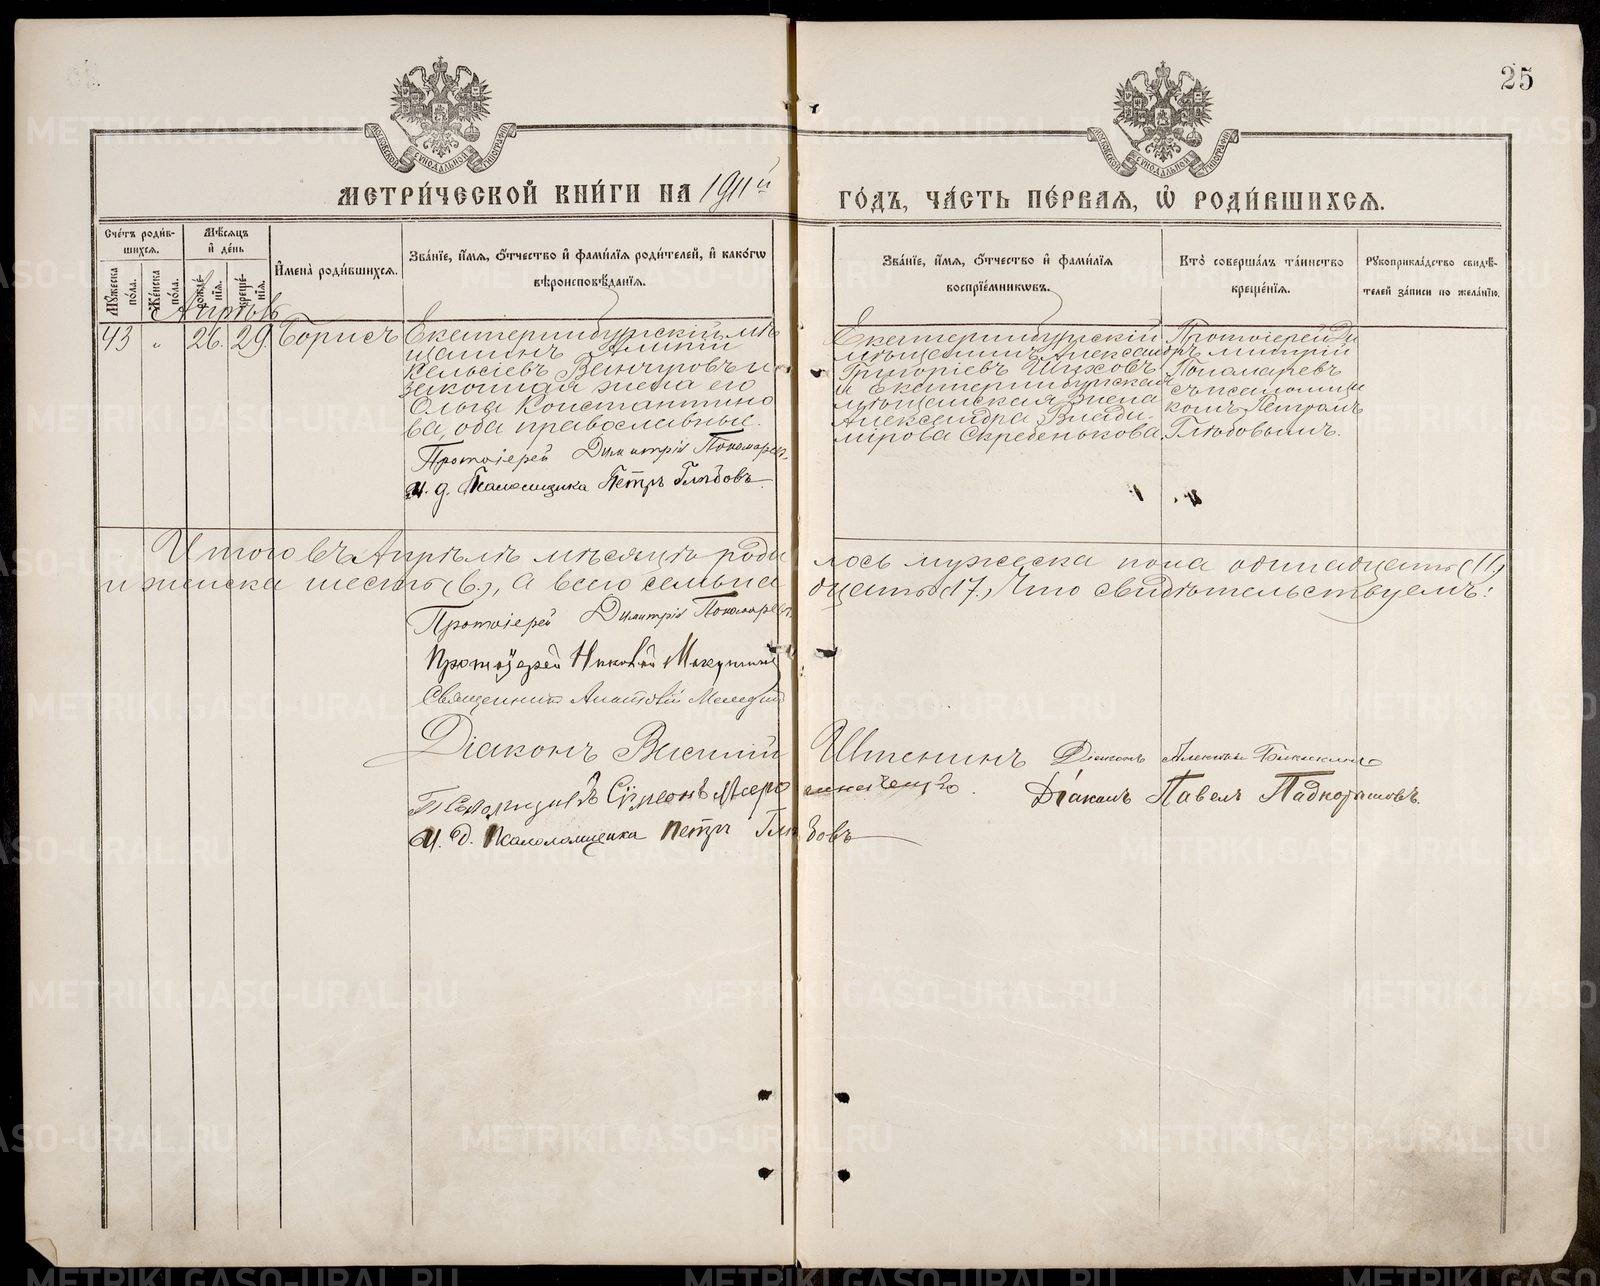 25
МЕТРИЧЕСКОЙ КНИГИ НА 1911й ГОДЪ, ЧАСТЬ ПЕРВАЯ, Ѡ РОДИВШИХСЯ.
Счетъ родившихся.
Мужеска пола.
Женска пола.
Мѣсяцъ и день
рожденїя.
крещенїя.
Имена родившихся.
Званїе, имя, отчество и фамилїя родителей, и какогѡ
вѣроисповѣданїя.
Званїе, имя, отчество и фамилїя
воспрїемникѡвъ.
Кто совершалъ таинство
крещенїя.
Рукоприкладство свидѣ-
телей записи по желанїю.
Апрѣль
43 " 26. 29. Борисъ
Екатеринбургскій мѣ
щанинъ
Кельсіевъ Винчуровъ и
законная жена его
Ольга Константино
ва, оба православные.
Протоіерей Димитрій Пономаревъ
И. д. Псаломщика Петръ Глѣбовъ
Екатеринбургскій
мѣщанинъ Александръ
Григоріевъ
и Екатеринбургская
мѣщанская жена
Александра Влади-
мірова Скребенькова
Протоіерей Ди
митрій
Пономаревъ
съ псаломщи
комъ Петромъ
Глѣбовымъ.
Итого въ Апрѣлѣ мѣсяцѣ роди лось мужеска пола одинадцать (11)
и женска шесть (6.), а всего семьна дцать (17.) Что свидѣтельствуемъ:
Протоіерей Димитрій Пономаревъ
Протоіерей
Священникъ
Діаконъ Василій Итенинъ Діаконъ
Псаломщикъ Діаконъ Павелъ
И. д. Псаломщика Петръ Глѣбовъ
METRIKI.GASO-URAL.RU